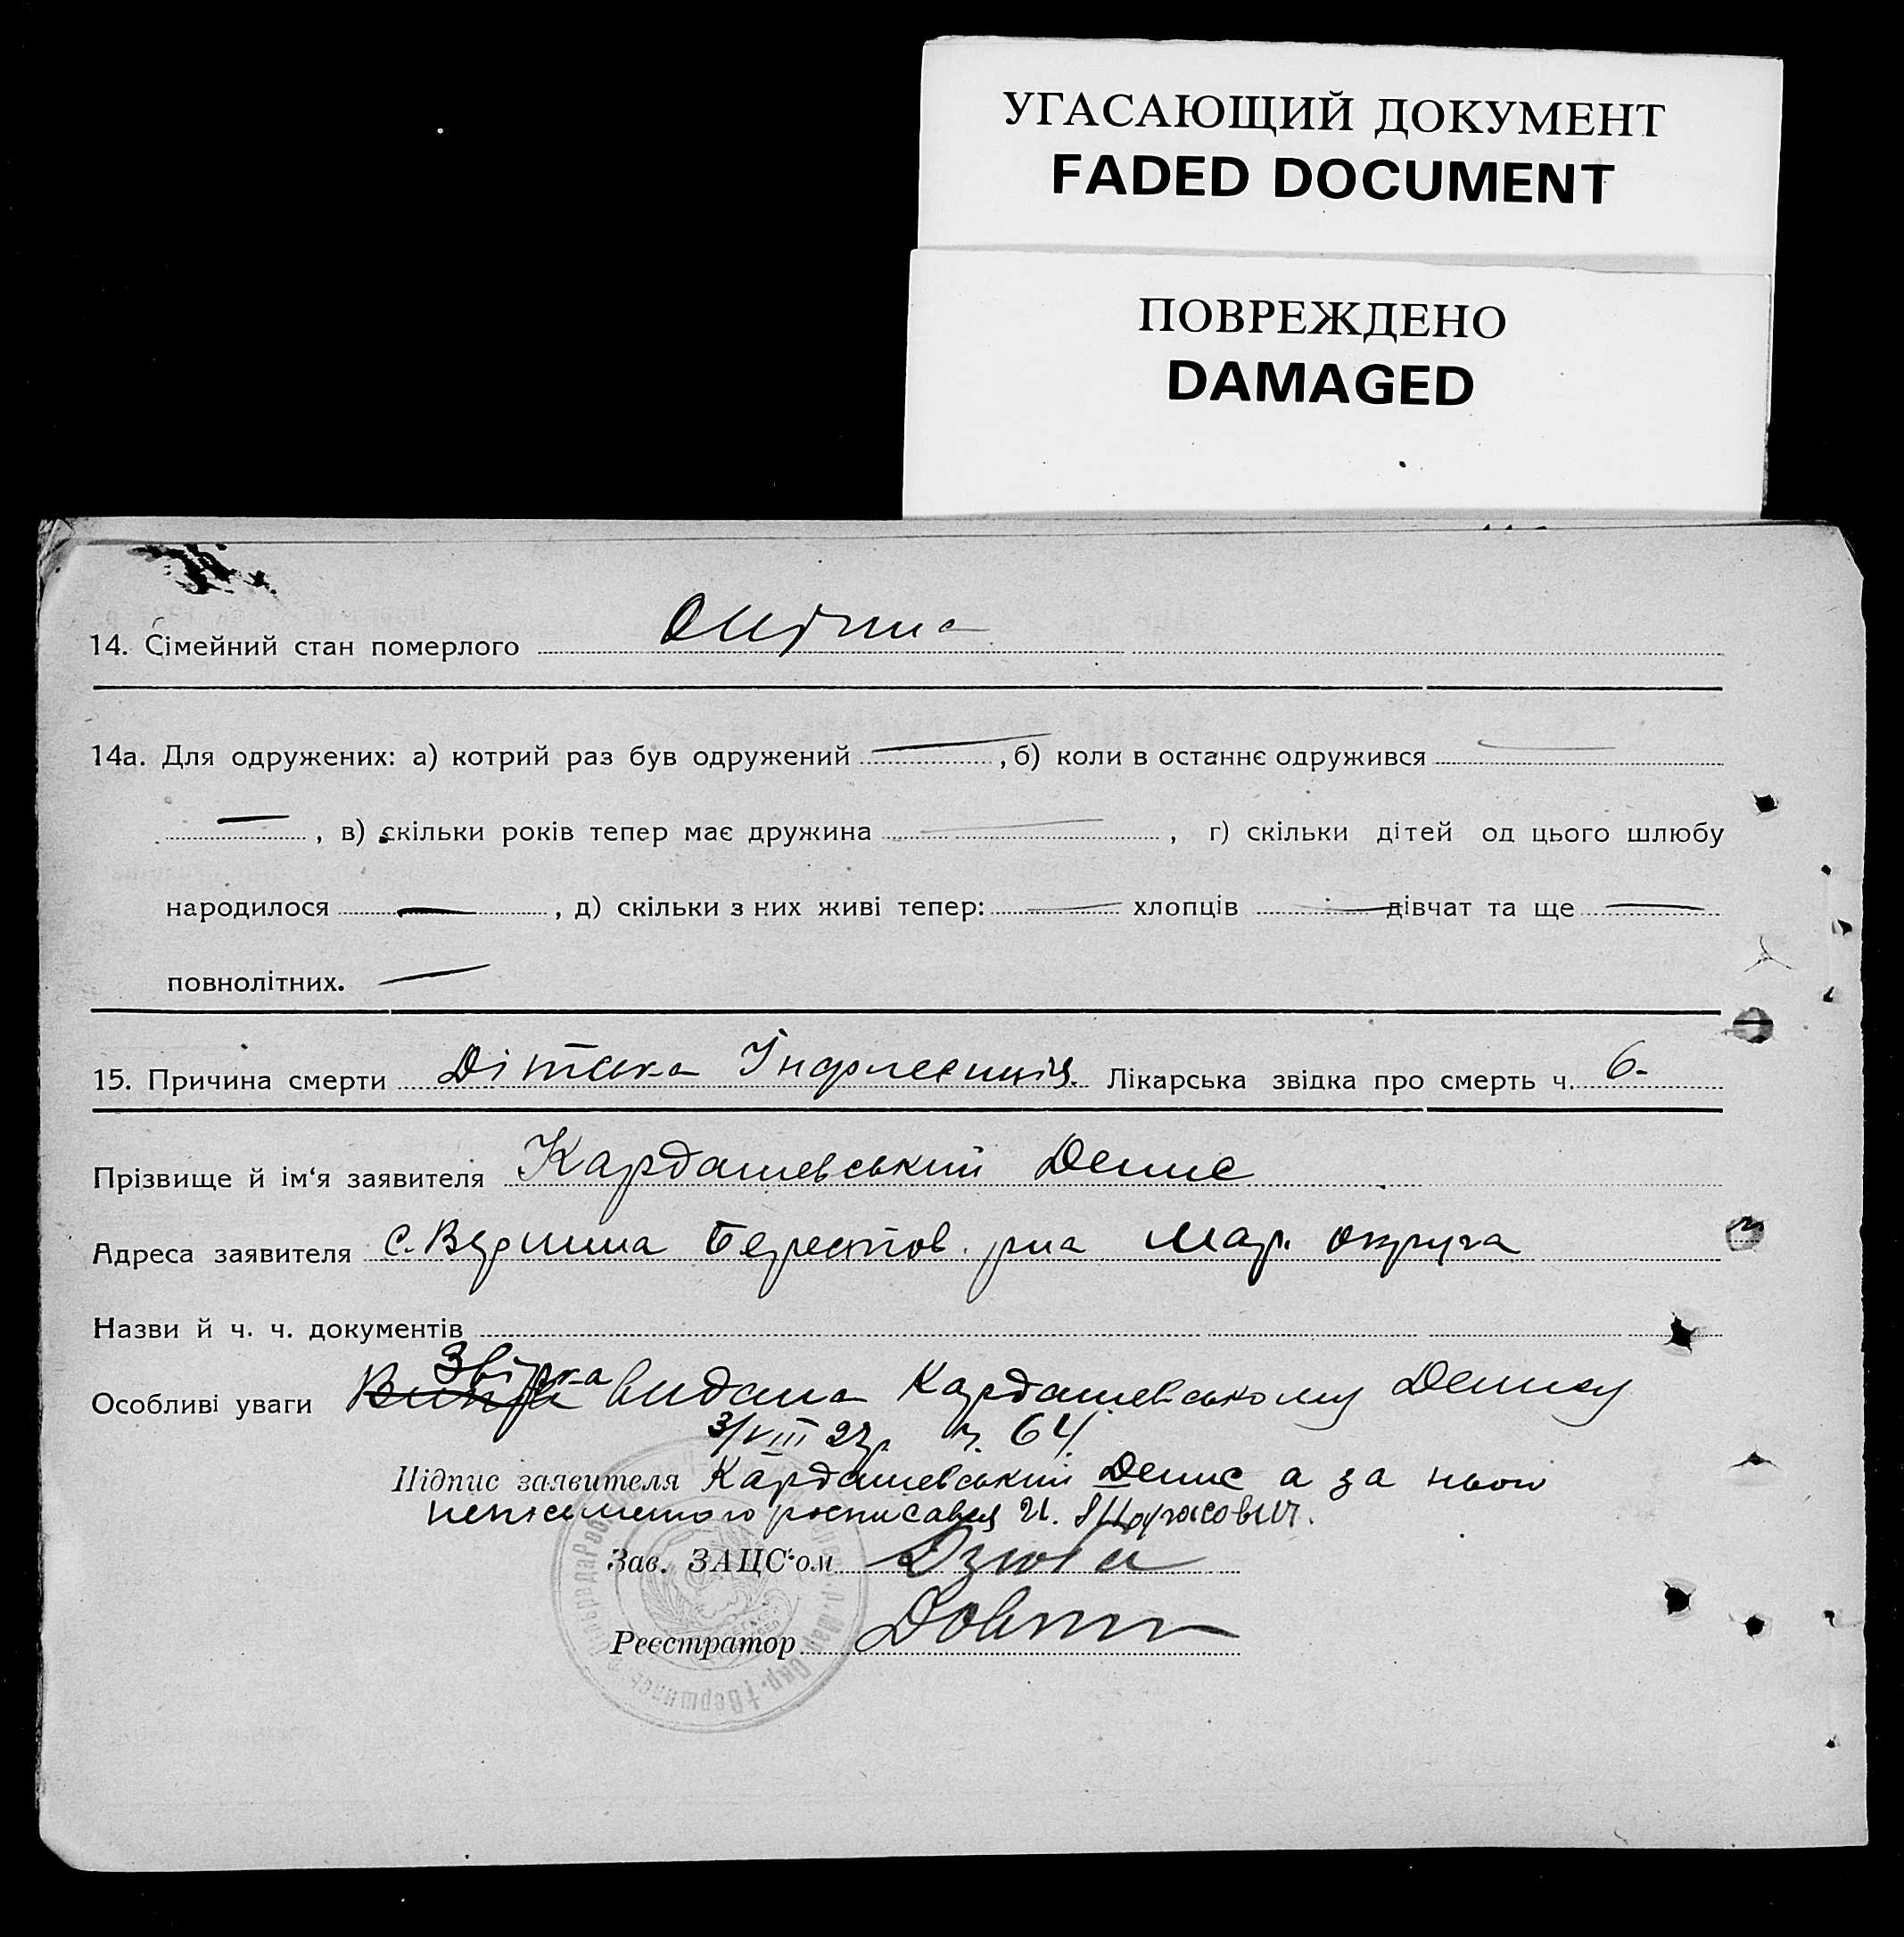 УГАСАЮЩИЙ ДОКУМЕНТ
FADED DOCUMENT
ПОВРЕЖДЕНО
DAMAGED
14. Сімейний стан померлого
14а. Для одружених: а) котрий раз був одружений — , б) коли в останнє одружився —
— , в) скільки років тепер має дружина — , г) скільки дітей од цього шлюбу
народилося — , д) скільки з них живі тепер: — хлопців — дівчат та ще —
повнолітних. —
15. Причина смерти Дітска Лікарська звідка про смерть ч. 6-
Прізвище й ім‘я заявителя Кардашевський Денис
Адреса заявителя с. Вершина Берестов. р-на Мар. округа
Назви й ч. ч. документів
Звірка
Особливі уваги видана Кардашевському Денису
3/VIII 27р ч. 64.
Підпис заявителя Кардашевський Денис а за нього
неписьменого росписався И.
Зав. ЗАЦС‘ом Дзюба
Реєстратор